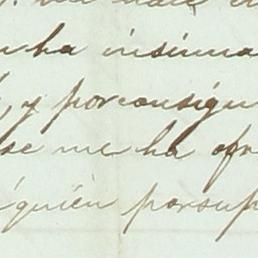 ha insinua
, y por consigu
se me ha ofr
quien por sup